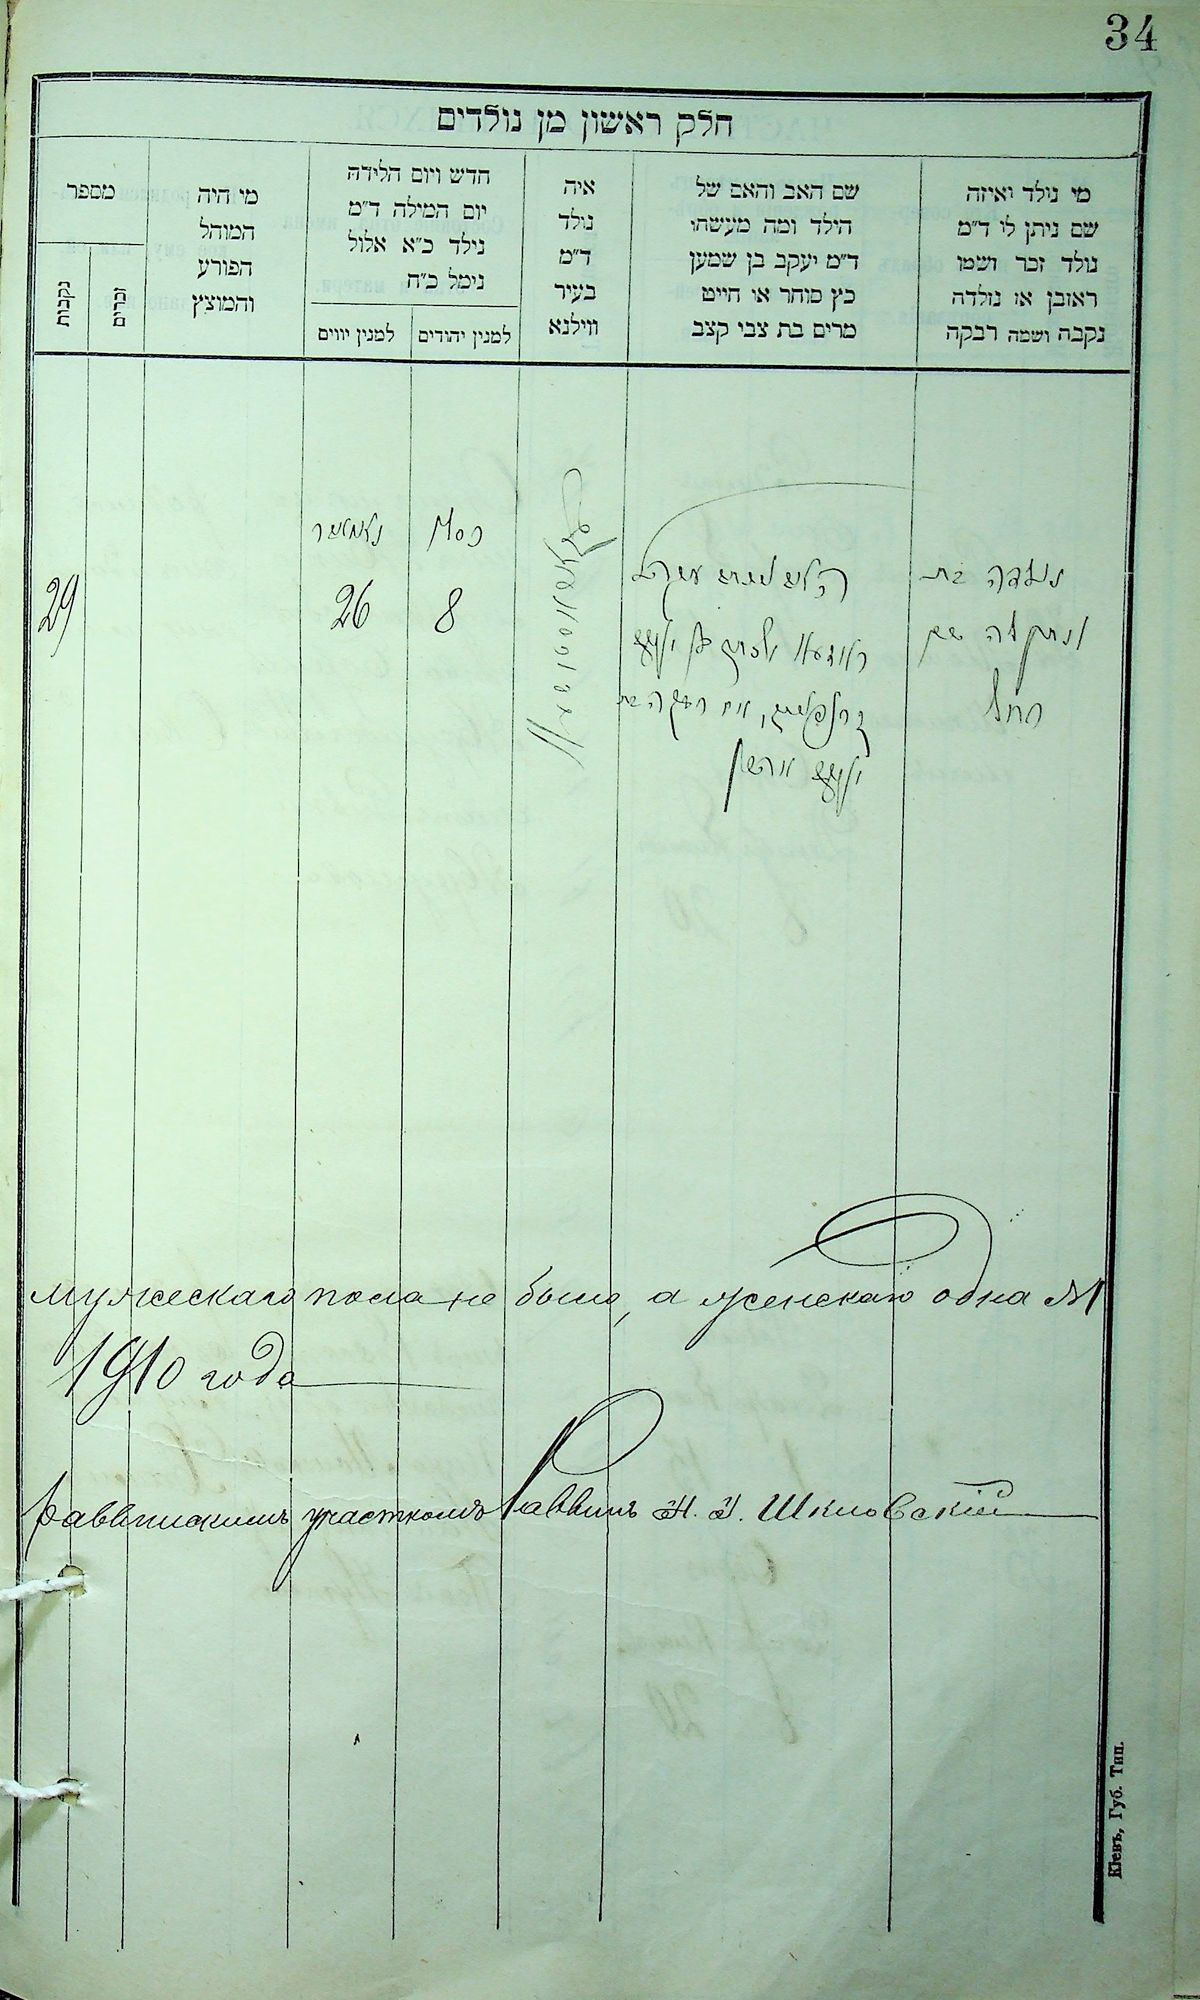 34
חלק ראשון מן נולדים
מי נולד ואיזה
שם ניתן לו ד״מ
נולד זכר ושמו
ראובן או נולדה
נקבה ושמה רבקה
שם האב והאם של
הילד ומה מעשהו
ד״מ יעקב בן שמען
כץ סוחר או חייט
מרים בת צבי קצב
איה
נולד
ד״מ
בעיר
ווילנא
חדש ויום הלידה
יום המילה ד״מ
נילד כ״א אלול
נימל כ״ח
למנין יהודים
למנין יווים
מי היה
המוהל
הפורע
והמוצץ
מספר
זכרים
נקבות
נולדה בת
ונתן לה שם
רחל
כסלו
8
26
29
мужескаго пола не было, а женскаго одна №1
1910 года
Раввинскимъ участкомъ Раввинъ Шкловскій
Кіевъ, Губ. Тип.